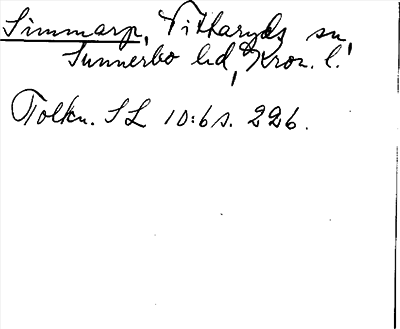 Simmarp, Vittaryds sn,
Sunnerbo hd, Kron. l.
Tolkn. SL 10:6 s. 226.